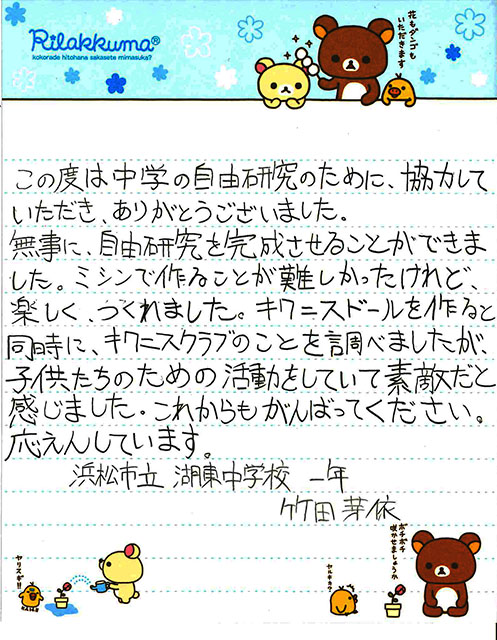 Rilakkuma®
kokorade hitohana sakasete mimasuka?
花もダンゴも
いただきます
この度は中学の自由研究のために、協力して
いただき、ありがとうございました。
無事に、自由研究を完成させることができま
した。ミシンで作ることが難しかったけれど、
楽しく、つくれました。キワニスドールを作ると
同時に、キワニスクラブのことを調べましたが、
子供たちのための活動をしていて素敵だと
感じました。これからもがんばってください。
応えんしています。
浜松市立 湖東中学校 一年
竹田 芽依
ヤリスギ!!
ヤルキカ?
ボチボチ
咲かせましょうか